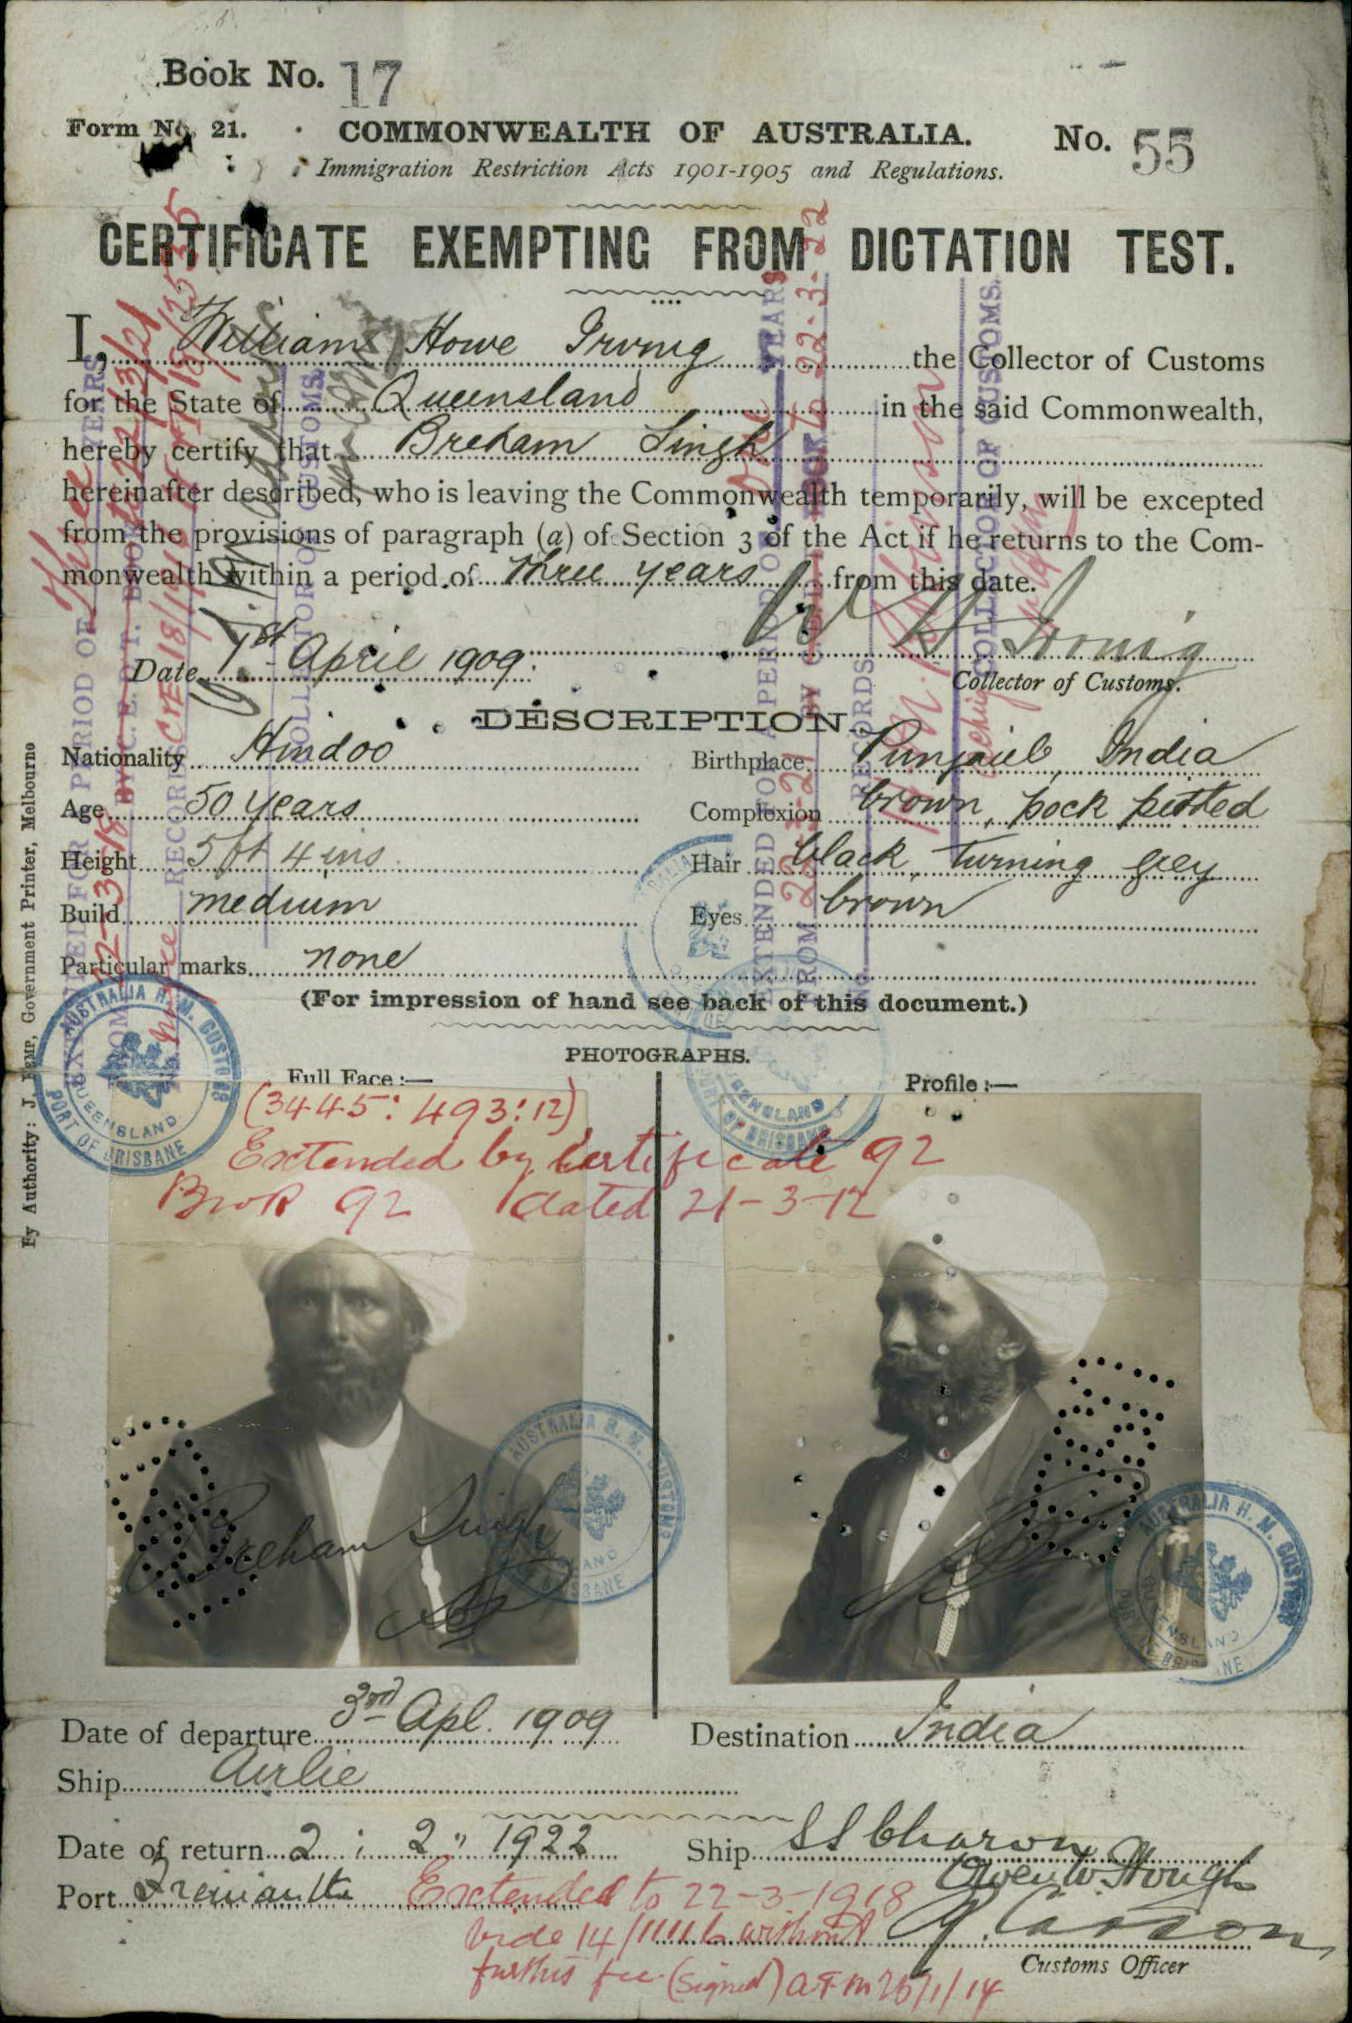 Book No. 17
Form No. 21. COMMONWEALTH OF AUSTRALIA. No. 55
Immigration Restriction Acts 1901-1905 and Regulations.
CERTIFICATE EXEMPTING FROM DICTATION TEST.
I, William Howe Irving the Collector of Customs
for the State of Queensland in the said Commonwealth,
hereby certify that Breham Singh
hereinafter described, who is leaving the Commonwealth temporarily, will be excepted
from the provisions of paragraph (a) of Section 3 of the Act if he returns to the Com-
monwealth within a period of three years from this date.
W H Irving
Date 1st April 1909.
Collector of Customs.
DESCRIPTION.
Nationality Hindoo Birthplace Punjaub, India
Age 50 years Complexion brown, pock pitted
Height 5 ft 4 ins Hair black, turning grey
Build medium Eyes brown
Particular marks none
(For impression of hand see back of this document.)
PHOTOGRAPHS.
Full Face :— Profile :—
(3445: 493:12)
Extended by Certificate 92
Book 92 dated 21-3-12
Breham Singh
Date of departure 3rd Apl. 1909 Destination India
Ship Airlie
Date of return 2 : 2 " 1922 Ship SS Charon
Port Fremantle Extended to 22-3-1918
vide 14/ without
further fee (signed)
Customs Officer
By Authority: J. KEMP, Government Printer, Melbourne
EXTENDED FOR PERIOD OF Three YEARS
FROM 22-3-18
RECORDS
COLLECTOR OF CUSTOMS.
EXTENDED FOR A PERIOD OF One YEARS
FROM 22-3-21 BY C.E.D.T. BOOK To 22-3-22
RECORDS
COLLECTOR OF CUSTOMS.
AUSTRALIA H. M. CUSTOMS
QUEENSLAND
PORT OF BRISBANE
AUSTRALIA H. M. CUSTOMS
QUEENSLAND
PORT OF BRISBANE
AUSTRALIA H. M. CUSTOMS
QUEENSLAND
PORT OF BRISBANE